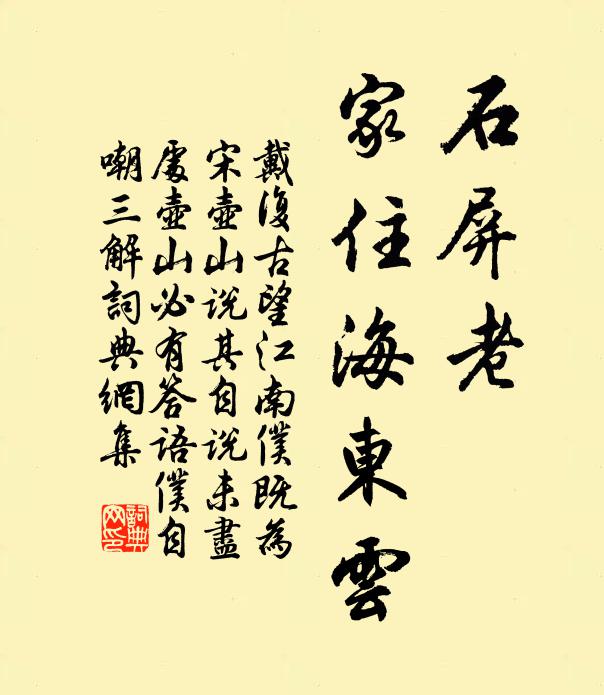 石屏老
家住海東雲
戴復古望江南僕既為
宋壺山說其自說未盡
處壺山必有答語僕自
嘲三解詞典網集
詞典
网印